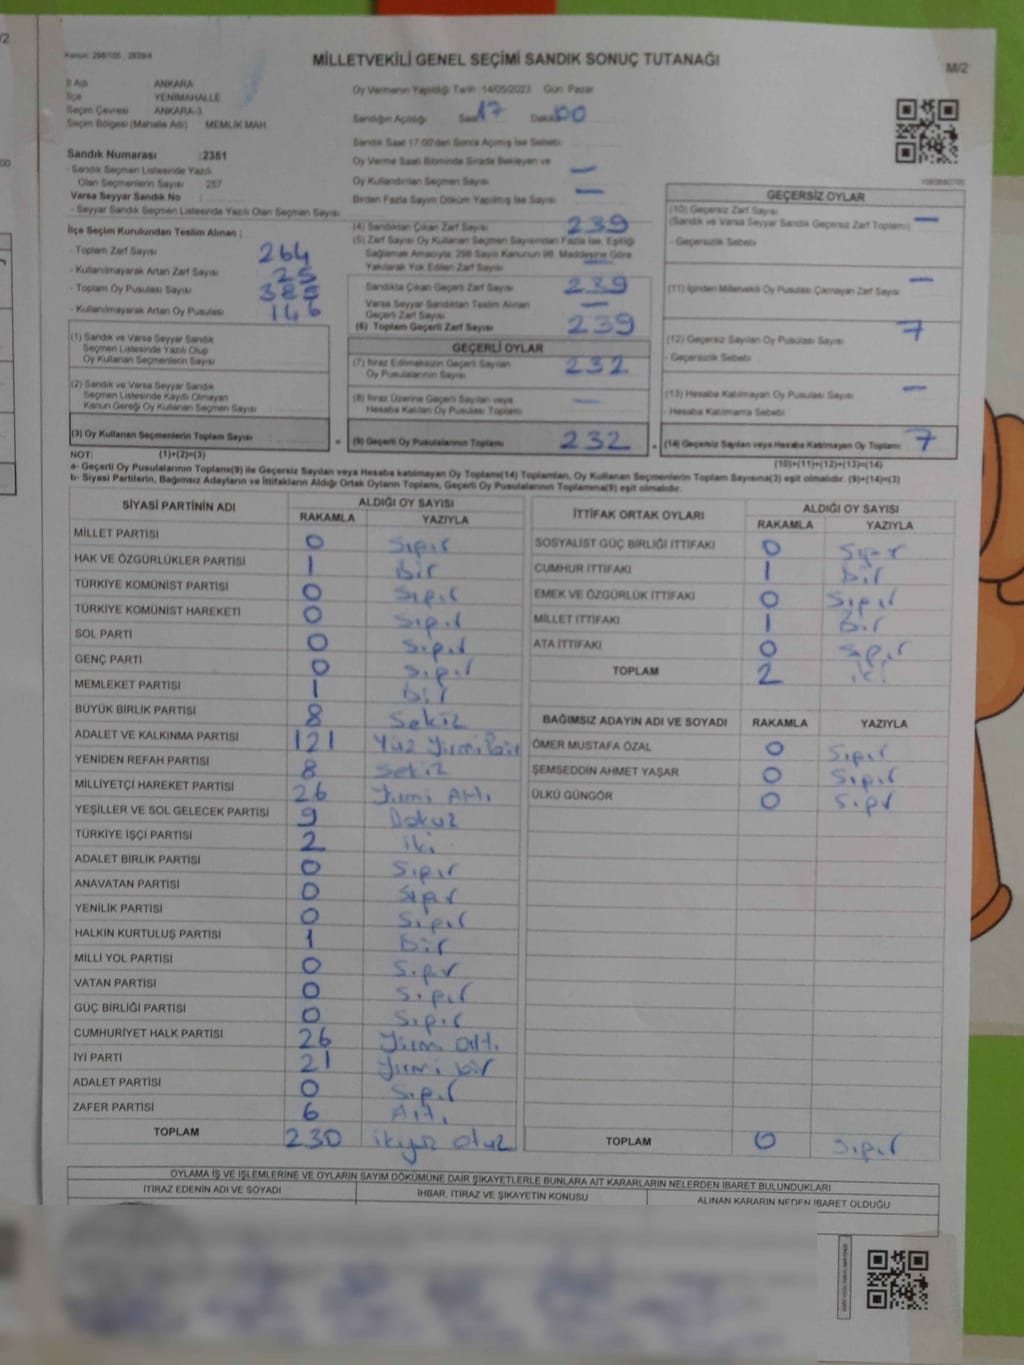 MİLLETVEKİLİ GENEL SEÇİMİ SANDIK SONUÇ TUTANAĞI
M/2
İl Adı ANKARA
İlçe YENİMAHALLE
Seçim Çevresi ANKARA-3
Seçim Bölgesi (Mahalle Adı) MEMLİK MAH.
Oy Vermenin Yapıldığı Tarih :14/05/2023 Gün: Pazar
Sandığın Açıldığı Saat 17 Dakika 00
Sandık Saat 17.00'den Sonra Açılmış İse Sebebi:
Oy Verme Saati Bitiminde Sırada Bekleyen ve
Oy Kullandırılan Seçmen Sayısı —
Birden Fazla Sayım Döküm Yapılmış İse Sayısı —
Sandık Numarası :2351
- Sandık Seçmen Listesinde Yazılı
Olan Seçmenlerin Sayısı 257
Varsa Seyyar Sandık No
- Seyyar Sandık Seçmen Listesinde Yazılı Olan Seçmen Sayısı
İlçe Seçim Kurulundan Teslim Alınan ;
- Toplam Zarf Sayısı 264
- Kullanılmayarak Artan Zarf Sayısı 25
- Toplam Oy Pusulası Sayısı
- Kullanılmayarak Artan Oy Pusulası 146
(1) Sandık ve Varsa Seyyar Sandık
Seçmen Listesinde Yazılı Olup
Oy Kullanan Seçmenlerin Sayısı
(2) Sandık ve Varsa Seyyar Sandık
Seçmen Listesinde Kayıtlı Olmayan
Kanun Gereği Oy Kullanan Seçmen Sayısı
(3) Oy Kullanan Seçmenlerin Toplam Sayısı
(4) Sandıktan Çıkan Zarf Sayısı 239
(5) Zarf Sayısı Oy Kullanan Seçmen Sayısından Fazla İse, Eşitliği
Sağlamak Amacıyla, 298 Sayılı Kanunun 98. Maddesine Göre
Yakılarak Yok Edilen Zarf Sayısı —
Sandıkta Çıkan Geçerli Zarf Sayısı 239
Varsa Seyyar Sandıktan Teslim Alınan
Geçerli Zarf Sayısı —
(6) Toplam Geçerli Zarf Sayısı 239
GEÇERLİ OYLAR
(7) İtiraz Edilmeksizin Geçerli Sayılan
Oy Pusulalarının Sayısı 232
(8) İtiraz Üzerine Geçerli Sayılan veya
Hesaba Katılan Oy Pusulası Toplamı —
(9) Geçerli Oy Pusulalarının Toplamı 232
GEÇERSİZ OYLAR
(10) Geçersiz Zarf Sayısı
(Sandık ve Varsa Seyyar Sandık Geçersiz Zarf Toplamı) —
- Geçersizlik Sebebi
(11) İçinden Milletvekili Oy Pusulası Çıkmayan Zarf Sayısı —
(12) Geçersiz Sayılan Oy Pusulası Sayısı 7
- Geçersizlik Sebebi
(13) Hesaba Katılmayan Oy Pusulası Sayısı —
- Hesaba Katılmama Sebebi
(14) Geçersiz Sayılan veya Hesaba Katılmayan Oy Toplamı 7
NOT: (1)+(2)=(3)
(10)+(11)+(12)+(13)=(14)
a- Geçerli Oy Pusulalarının Toplamı(9) ile Geçersiz Sayılan veya Hesaba katılmayan Oy Toplamı(14) Toplamları, Oy Kullanan Seçmenlerin Toplam Sayısına(3) eşit olmalıdır. (9)+(14)=(3)
b- Siyasi Partilerin, Bağımsız Adayların ve İttifakların Aldığı Ortak Oyların Toplamı, Geçerli Oy Pusulalarının Toplamına(9) eşit olmalıdır.
SİYASİ PARTİNİN ADI ALDIĞI OY SAYISI
RAKAMLA YAZIYLA
MİLLET PARTİSİ 0 Sıfır
HAK VE ÖZGÜRLÜKLER PARTİSİ 1 Bir
TÜRKİYE KOMÜNİST PARTİSİ 0 Sıfır
TÜRKİYE KOMÜNİST HAREKETİ 0 Sıfır
SOL PARTİ 0 Sıfır
GENÇ PARTİ 0 Sıfır
MEMLEKET PARTİSİ 1 bir
BÜYÜK BİRLİK PARTİSİ 8 Sekiz
ADALET VE KALKINMA PARTİSİ 121 Yüz Yirmi bir
YENİDEN REFAH PARTİSİ 8 Sekiz
MİLLİYETÇİ HAREKET PARTİSİ 26 Yirmi Altı
YEŞİLLER VE SOL GELECEK PARTİSİ 9 Dokuz
TÜRKİYE İŞÇİ PARTİSİ 2 iki
ADALET BİRLİK PARTİSİ 0 Sıfır
ANAVATAN PARTİSİ 0 Sıfır
YENİLİK PARTİSİ 0 Sıfır
HALKIN KURTULUŞ PARTİSİ 1 Bir
MİLLİ YOL PARTİSİ 0 Sıfır
VATAN PARTİSİ 0 Sıfır
GÜÇ BİRLİĞİ PARTİSİ 0 Sıfır
CUMHURİYET HALK PARTİSİ 26 Yirmi altı
İYİ PARTİ 21 Yirmi bir
ADALET PARTİSİ 0 Sıfır
ZAFER PARTİSİ 6 Altı
TOPLAM 230 ikiyüz otuz
İTTİFAK ORTAK OYLARI ALDIĞI OY SAYISI
RAKAMLA YAZIYLA
SOSYALİST GÜÇ BİRLİĞİ İTTİFAKI 0 Sıfır
CUMHUR İTTİFAKI 1 Bir
EMEK VE ÖZGÜRLÜK İTTİFAKI 0 Sıfır
MİLLET İTTİFAKI 1 Bir
ATA İTTİFAKI 0 Sıfır
TOPLAM 2 iki
BAĞIMSIZ ADAYIN ADI VE SOYADI RAKAMLA YAZIYLA
ÖMER MUSTAFA ÖZAL 0 Sıfır
ŞEMSEDDİN AHMET YAŞAR 0 Sıfır
ÜLKÜ GÜNGÖR 0 Sıfır
TOPLAM 0 Sıfır
OYLAMA İŞ VE İŞLEMLERİNE VE OYLARIN SAYIM DÖKÜMÜNE DAİR ŞİKAYETLERLE BUNLARA AİT KARARLARIN NELERDEN İBARET BULUNDUKLARI
İTİRAZ EDENİN ADI VE SOYADI İHBAR, İTİRAZ VE ŞİKAYETİN KONUSU ALINAN KARARIN NEDEN İBARET OLDUĞU